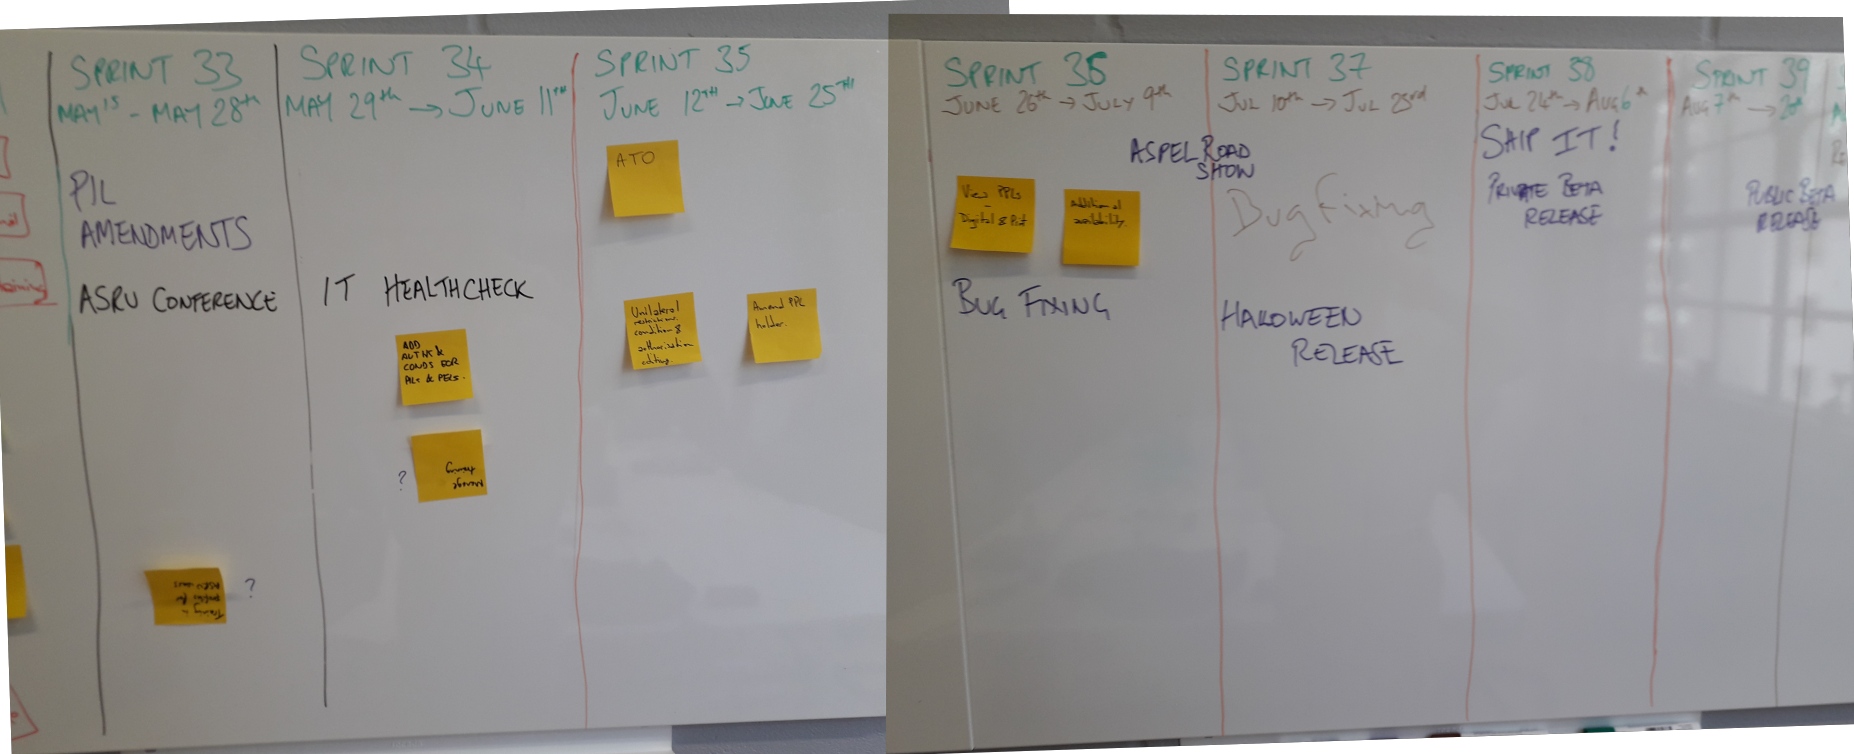 SPRINT 33
MAY 15 - MAY 28th
PIL
AMENDMENTS
ASRU CONFERENCE
?
SPRINT 34
MAY 29th → JUNE 11th
IT HEALTHCHECK
ADD
AUTHS &
CONDS FOR
PILs & PELs.
?
SPRINT 35
JUNE 12TH → JUNE 25TH
ATO
Unilateral
restrictions.
condition &
authorisation
editing.
Amend PPL
holder.
SPRINT 36
JUNE 26th → JULY 9th
ASPEL ROAD
SHOW
View PPLs
-
Digital & Pdf
Additional
availability.
BUG FIXING
SPRINT 37
JUL 10th → JUL 23rd
Bug Fixing
HALLOWEEN
RELEASE
SPRINT 38
JUL 24th → AUG 6th
SHIP IT!
PRIVATE BETA
RELEASE
SPRINT 39
AUG 7th → 20th
PUBLIC BETA
RELEASE